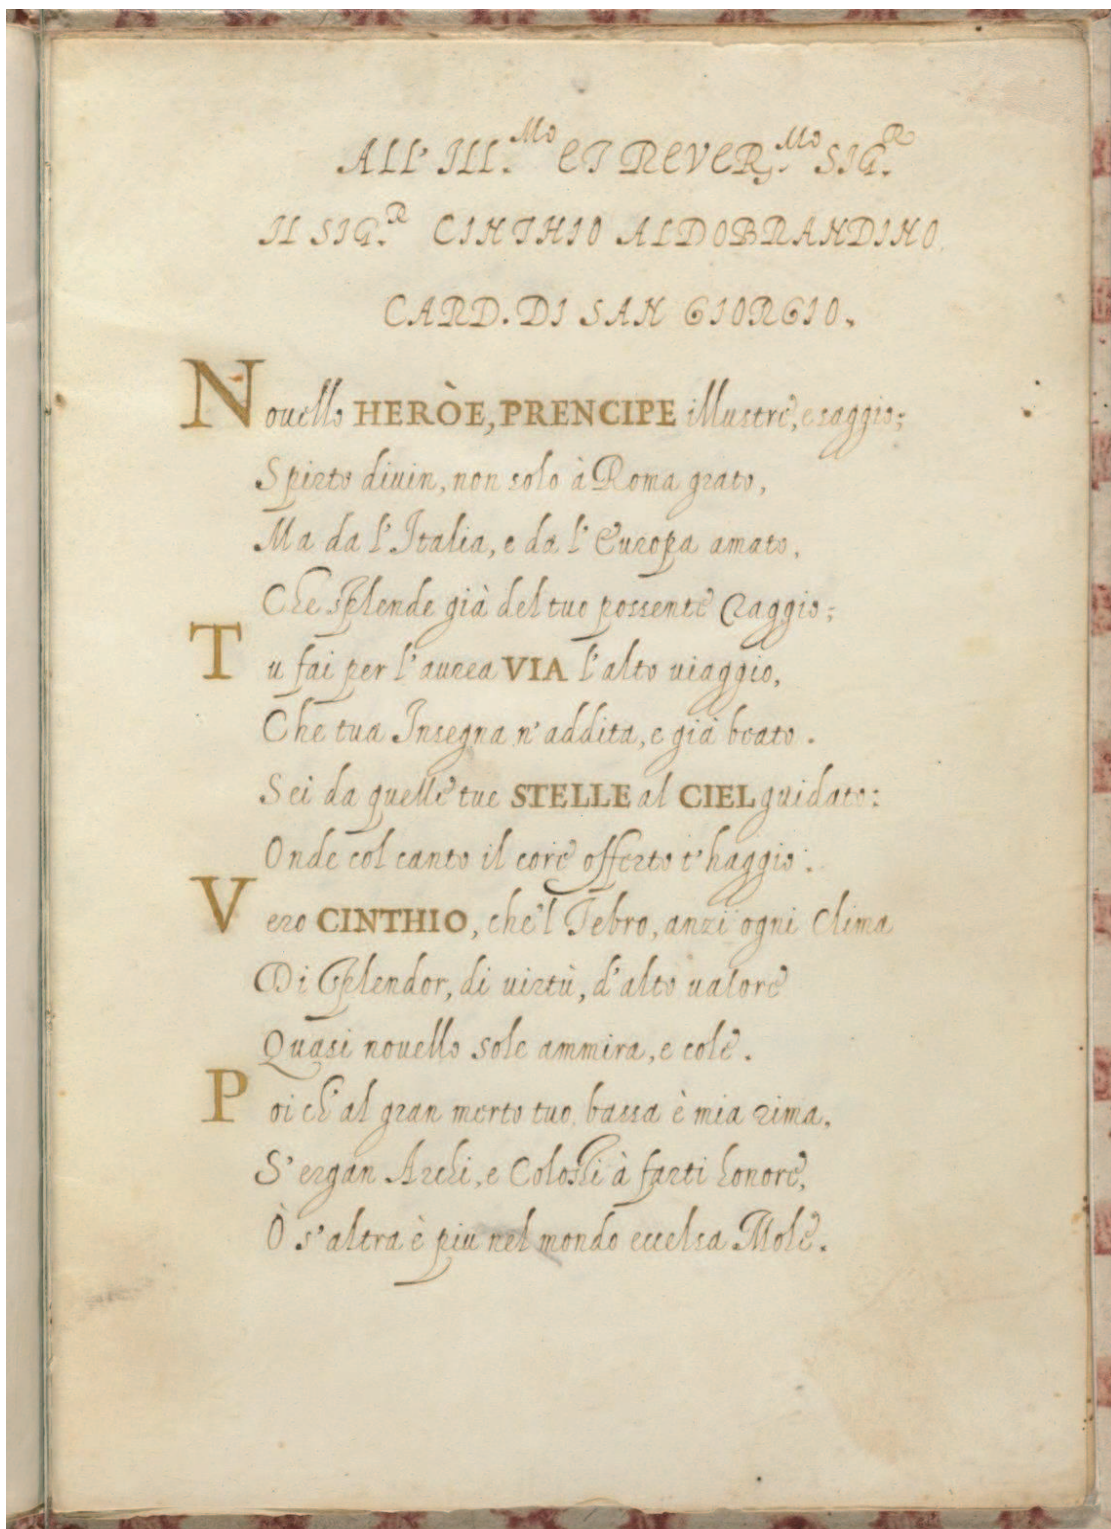 ALL' ILL.Mo ET REVER.Mo SIG.R
IL SIG.R CINTHIO ALDOBRANDINO.
CARD. DI SAN GIORGIO.
Nouello HERÒE, PRENCIPE illustre, e saggio;
Spirto diuin, non solo à Roma grato,
Ma da l'Italia, e da l'Europa amato,
Che splende già del tuo possente raggio;
Tu fai per l'aurea VIA l'alto uiaggio,
Che tua Insegna n'addita, e già beato.
Sei da quelle tue STELLE al CIEL guidato:
Onde col canto il core offerto t'haggio:
Vero CINTHIO, che'l Tebro, anzi ogni Clima
Di splendor, di uirtù, d'alto ualore
Quasi nouello sole ammira, e cole.
Poi ch'al gran merto tuo, bassa è mia rima,
S'ergan Archi, e Colossi à farti honore,
Ò s'altra è piu nel mondo eccelsa Mole.